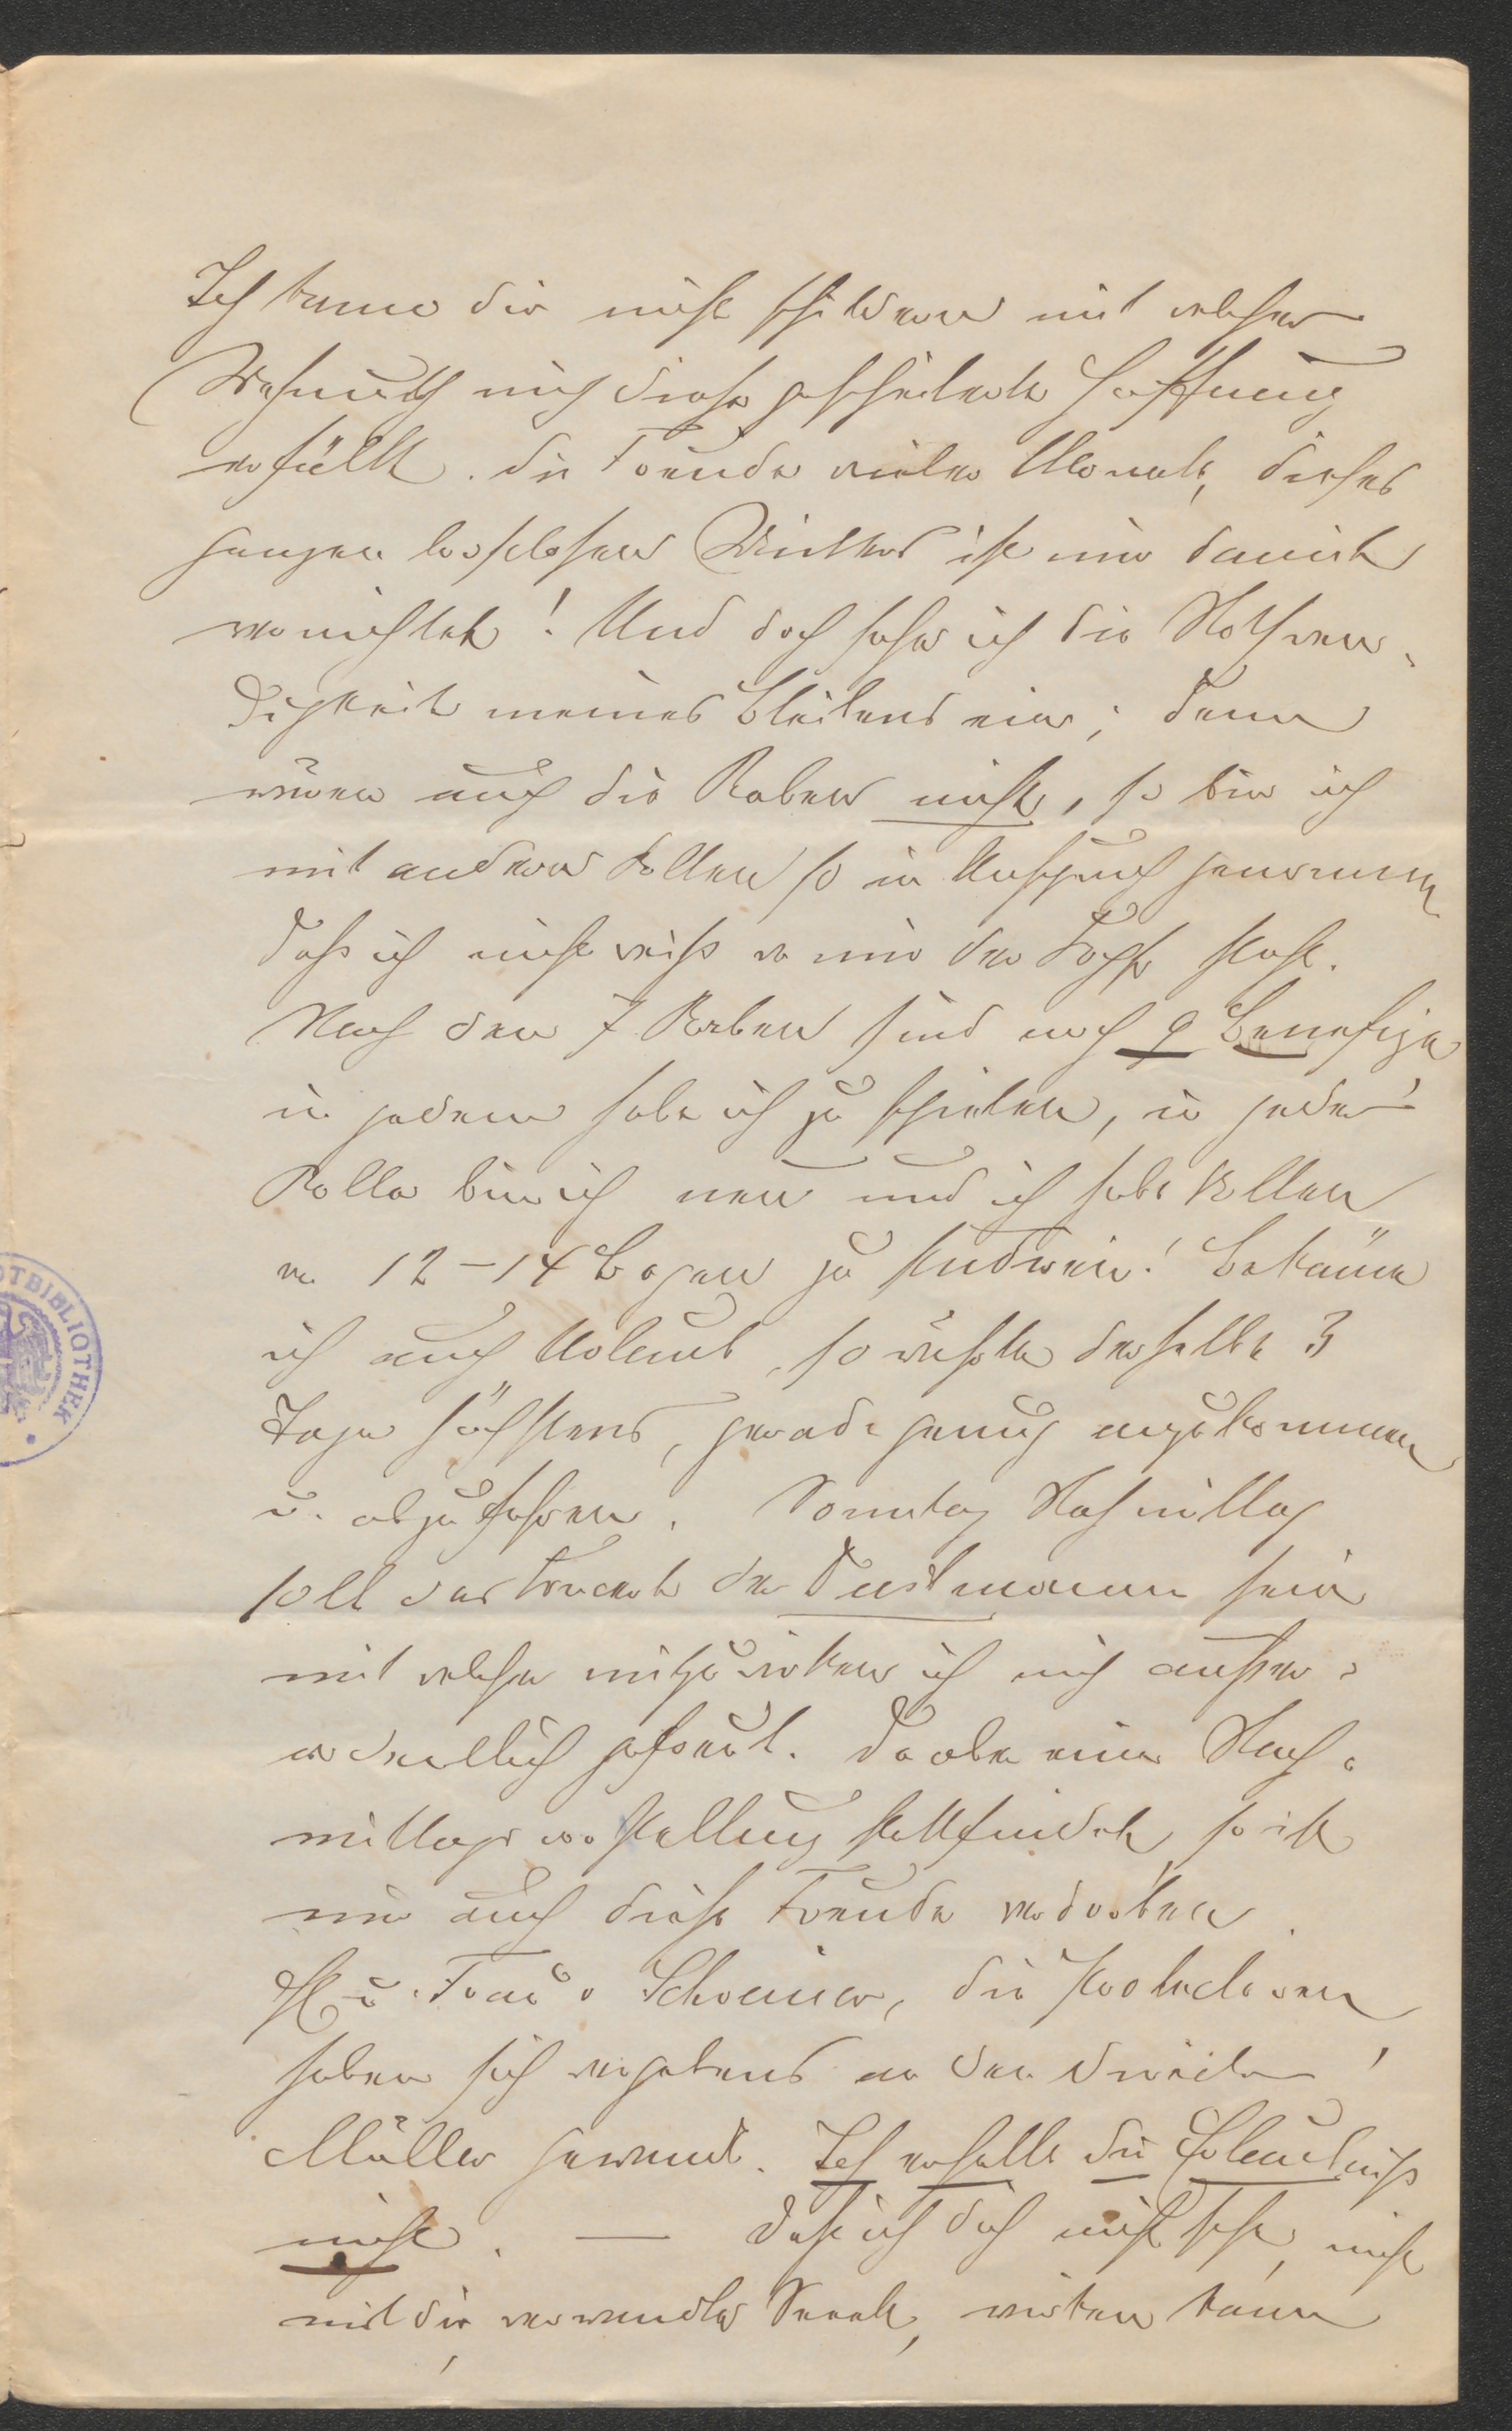 Ich kann dir nicht schildern mit welcher
Wehmuth mich diese gescheiterte Hoffnung
erfüllt. Die Freude vieler Monate, dieses
ganzen Winters ist mir damit
vernichtet! Und doch sehe ich die Nothwen-
digkeit meines Bleibens ein; denn
wären auch die Raben nicht, so bin ich
mit anderen Rollen so in Anspruch genommen
daß ich nicht weiß wo mir der Kopf steht.
Nach den 7 Raben sind noch 9 Benefize
in jedem habe ich zu spielen, in jeder
Rolle bin ich neu und ich habe Rollen
von 12-14 Bogen zu studieren! Bekäme
ich auch Urlaub, so währte derselbe 3
Tage höchstens, gerade genug anzukommen
u. abzufahren. Sonntag Nachmittag
soll das Concert der Dustmann sein
mit welcher mitzuwirken ich mich außer-
ordentlich gefreut. Da aber eine Nach-
mittagsvorstellung stattfindet, so ist
mir auch diese Freude verdorben.
H. u. Frau v. Schreiner, die Protectoren
haben sich vergebens an den Direktor
Müller gewendt. Ich erhalte die Erlaubniß
nicht. — Daß ich dich nicht sehe, nicht
mit dir, verwandte Seele, wirken kann